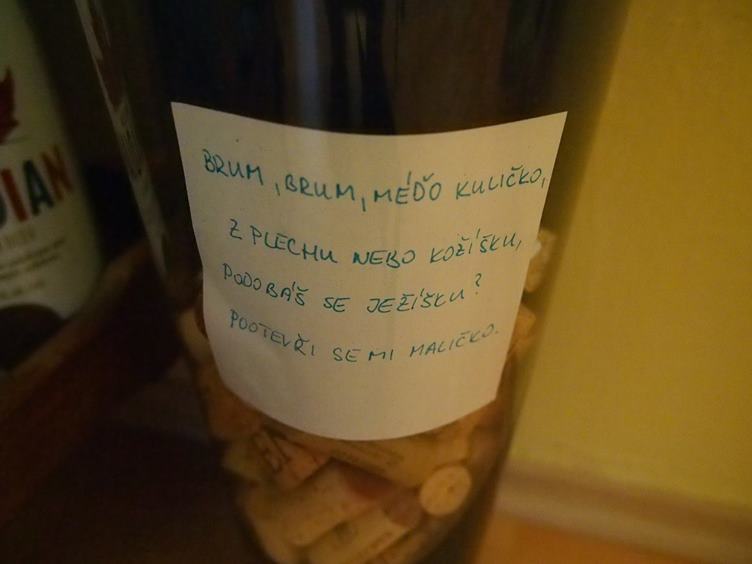 BRUM, BRUM, MÉĎO KULIČKO,
Z PLECHU NEBO KOŽÍŠKU,
PODOBÁŠ SE JEŽÍŠKU?
POOTEVŘI SE MI MALIČKO.
DIAN